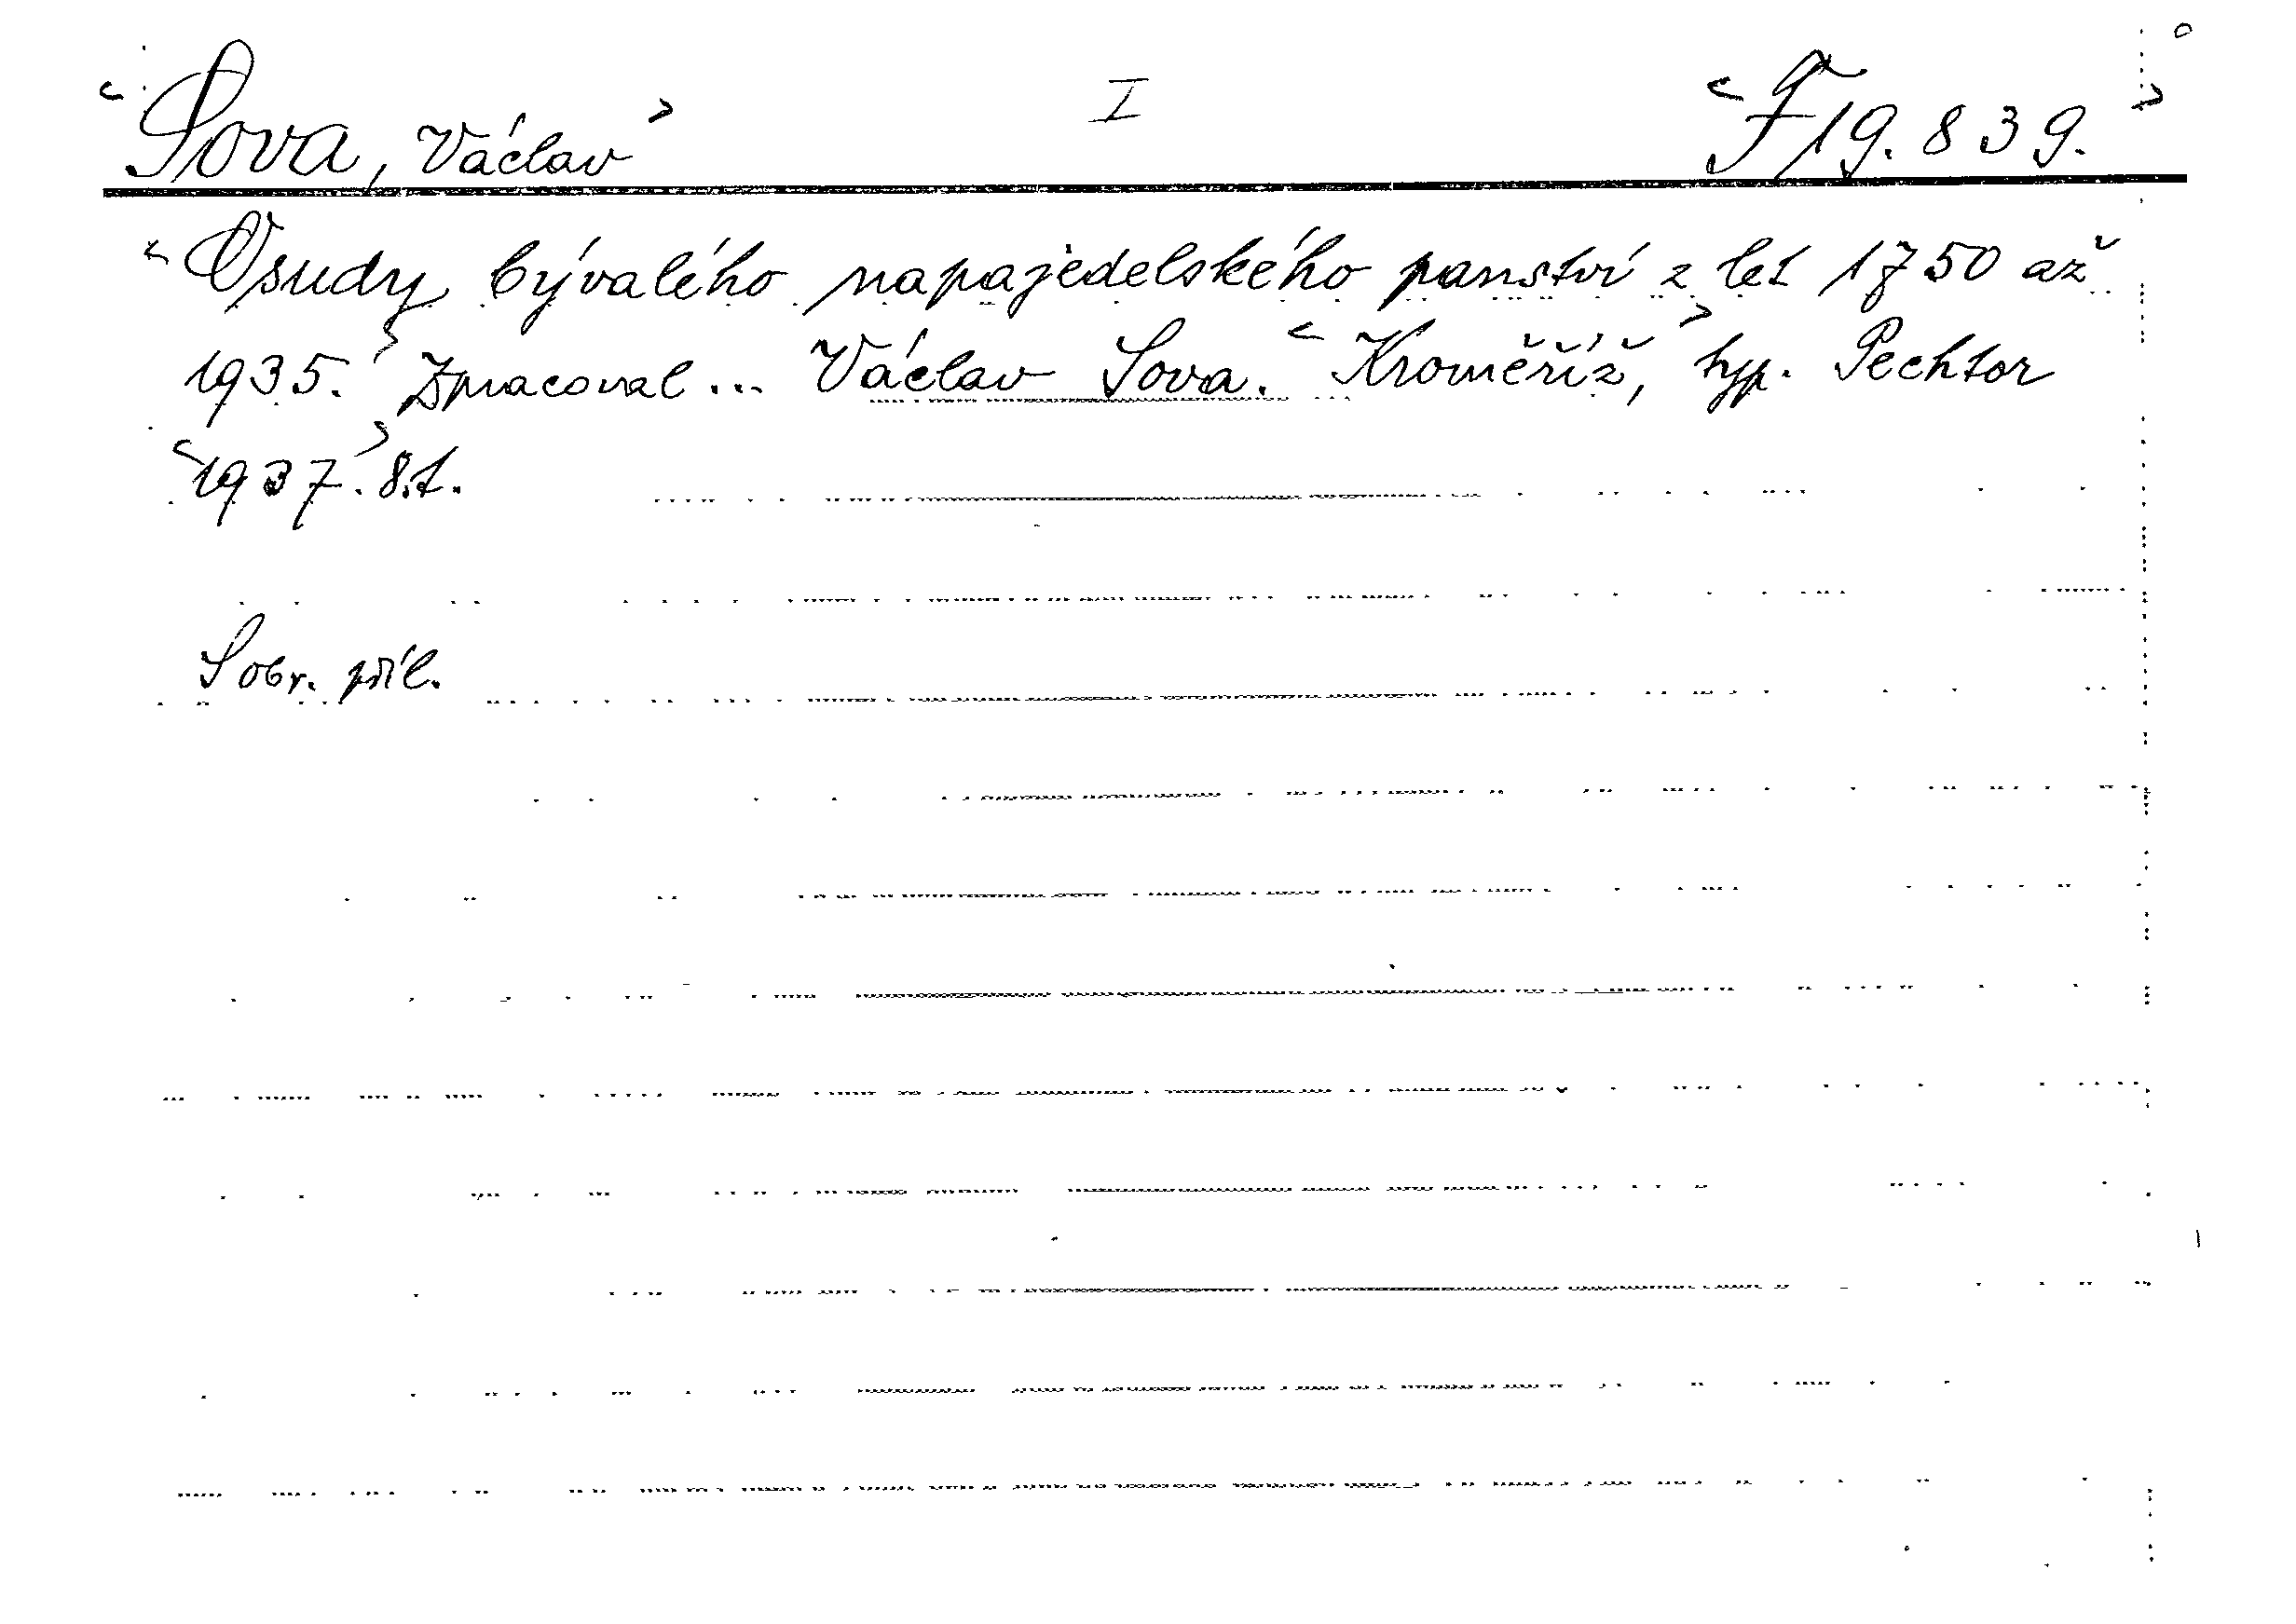 <Sova, Václav> I <F 19.839.>
<Osudy bývalého napajedelského panství z let 1750 až
1935.> Zpracoval ... Václav Sova. <Kroměříž,> typ. Pechtor
<1937.> 8.t.
S obr. příl.